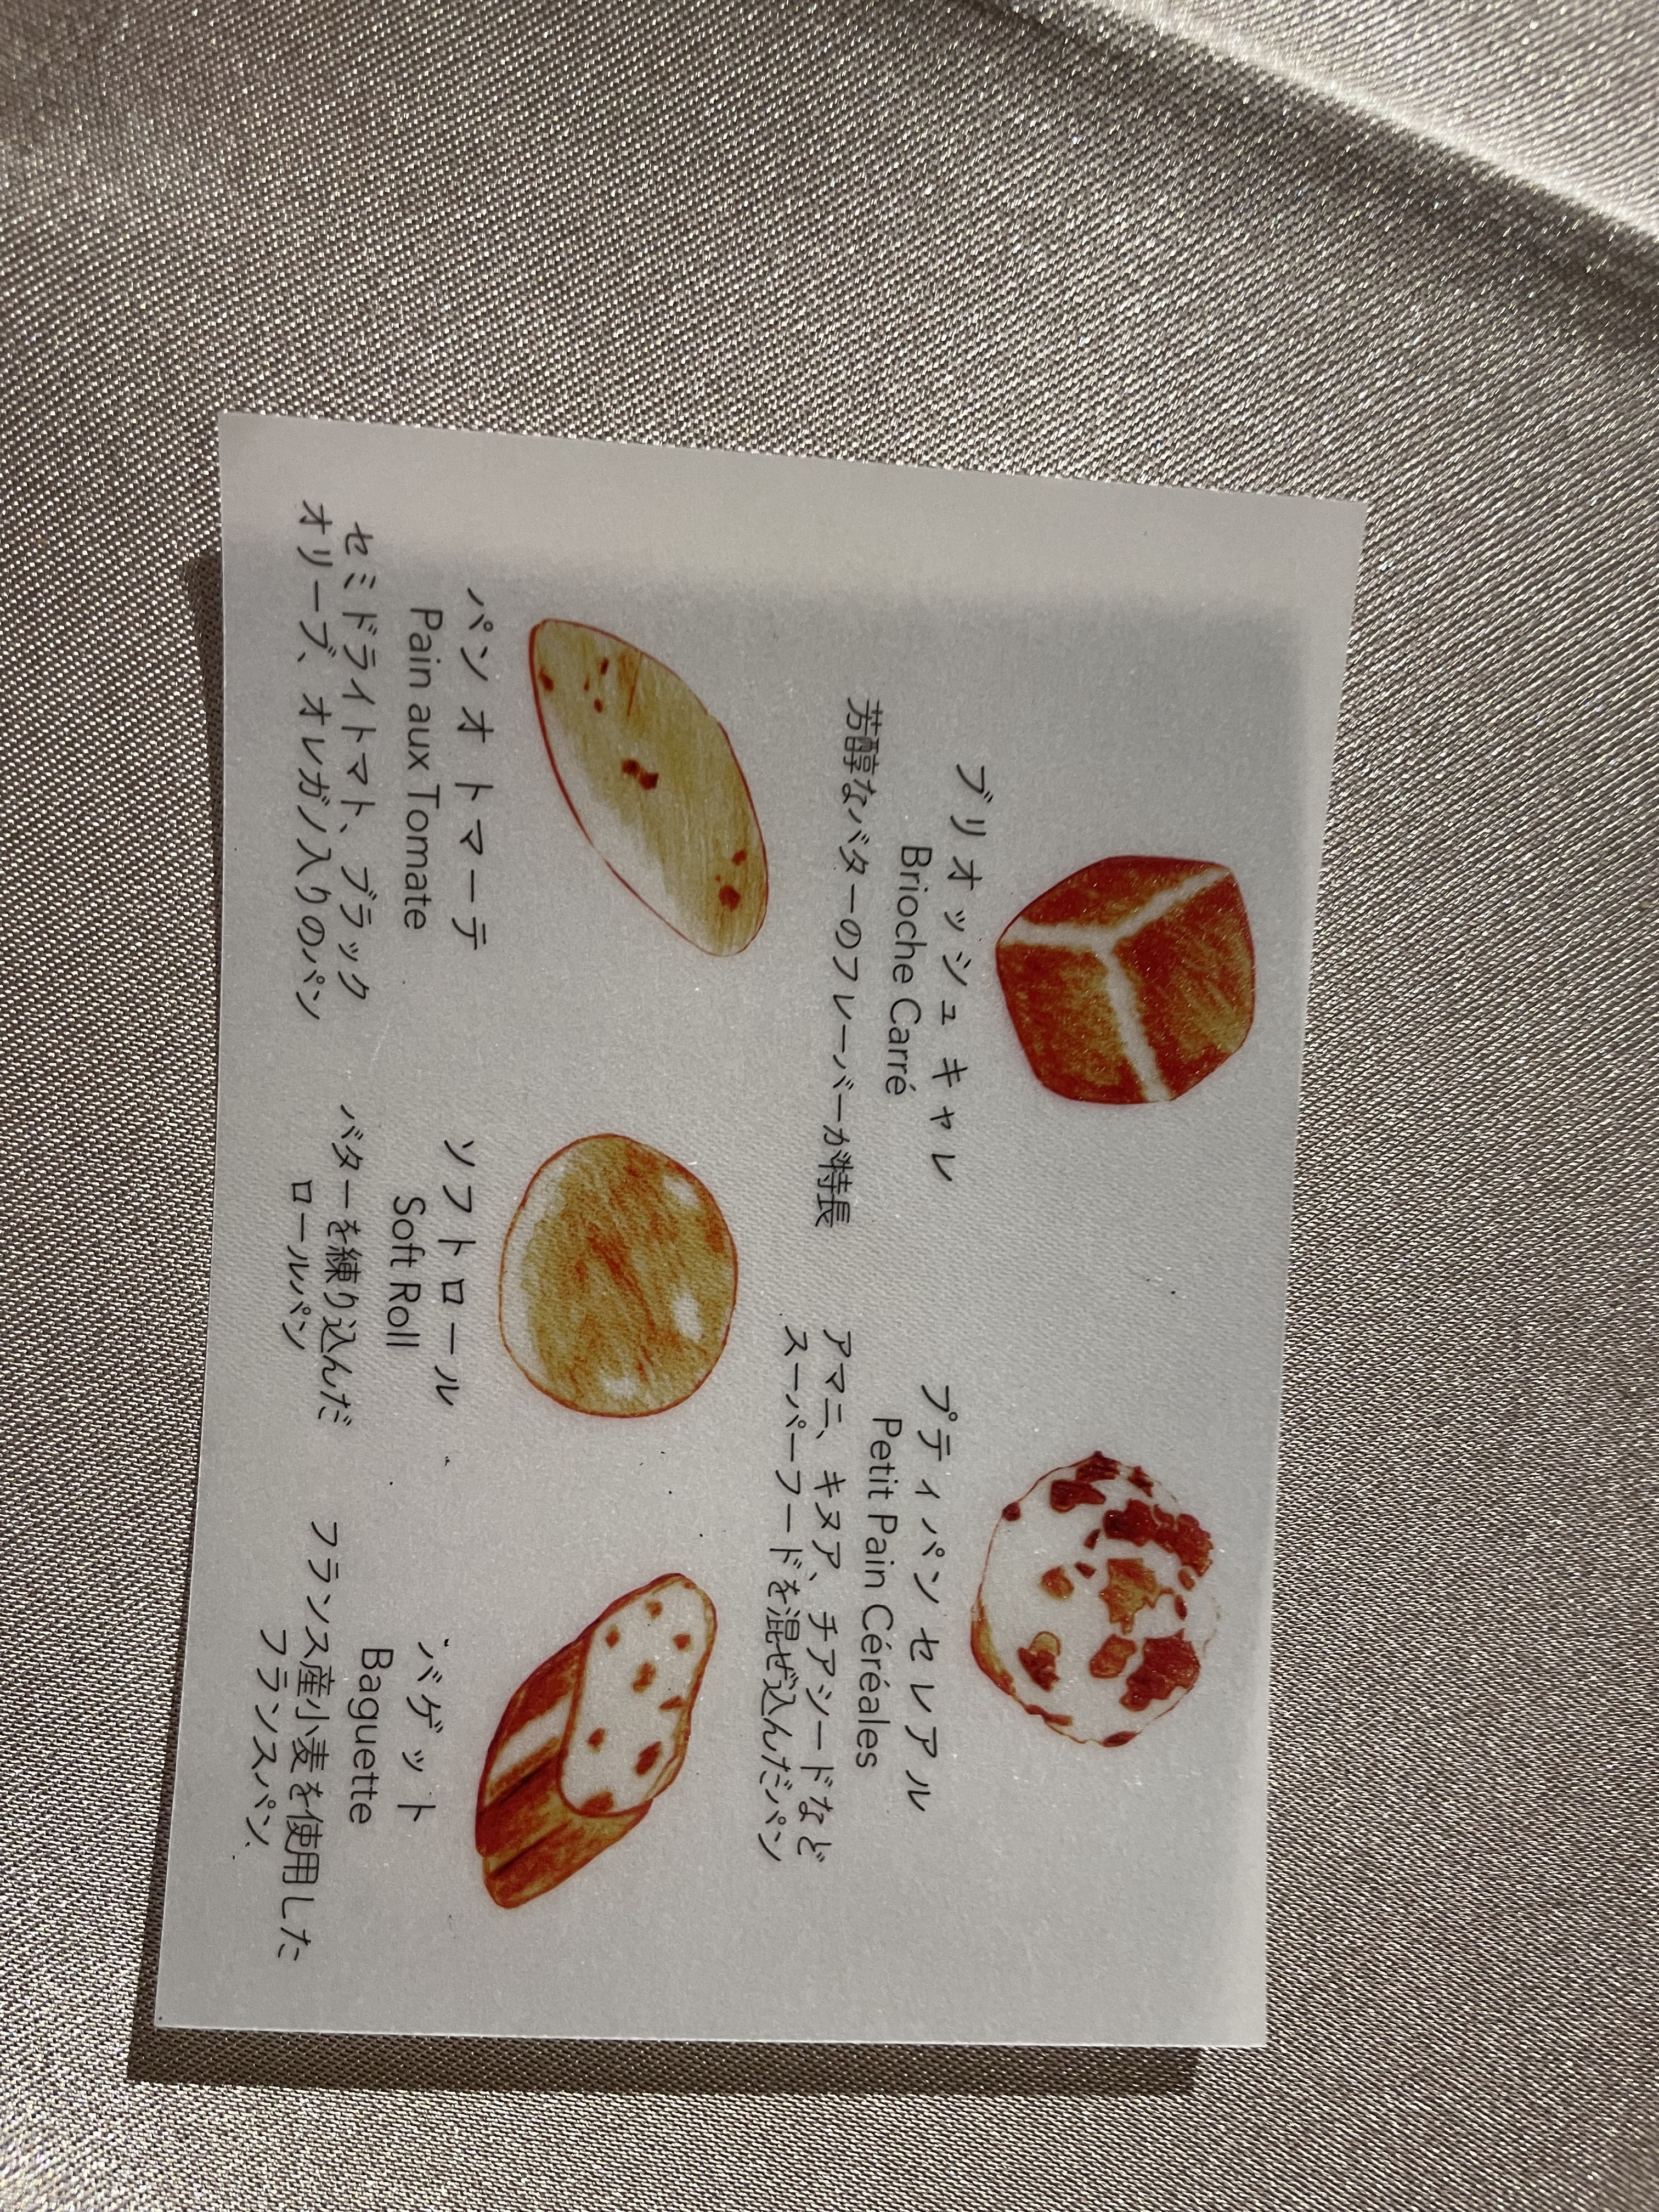 ブリオッシュ キャレ
Brioche Carré
芳醇なバターのフレーバーが特長
プティパン セレアル
Petit Pain Céréales
アマニ、キヌア、チアシードなど
スーパーフードを混ぜ込んだパン
パン オ トマーテ
Pain aux Tomate
セミドライトマト、ブラック
オリーブ、オレガノ入りのパン
ソフトロール
Soft Roll
バターを練り込んだ
ロールパン
バゲット
Baguette
フランス産小麦を使用した
フランスパン